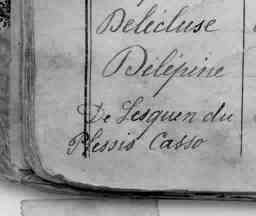 Delécluse
Delépine
De Lesquen du
Plessis Casso